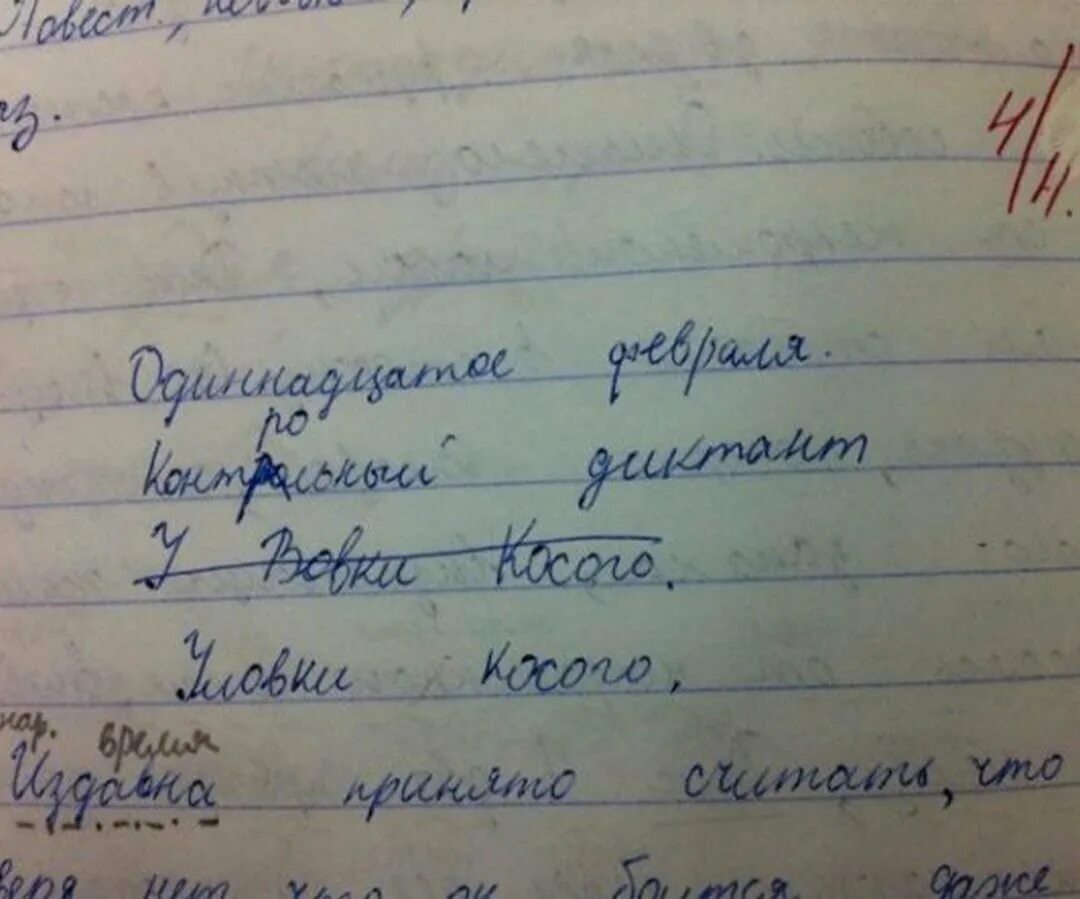 Повест.,
аз.
4/4.
Одиннадцатое февраля.
Контрольный диктант
У Вовки Косого.
Уловки косого.
нар. время
Издавна принято считать, что
зверя нет чем он боится даже